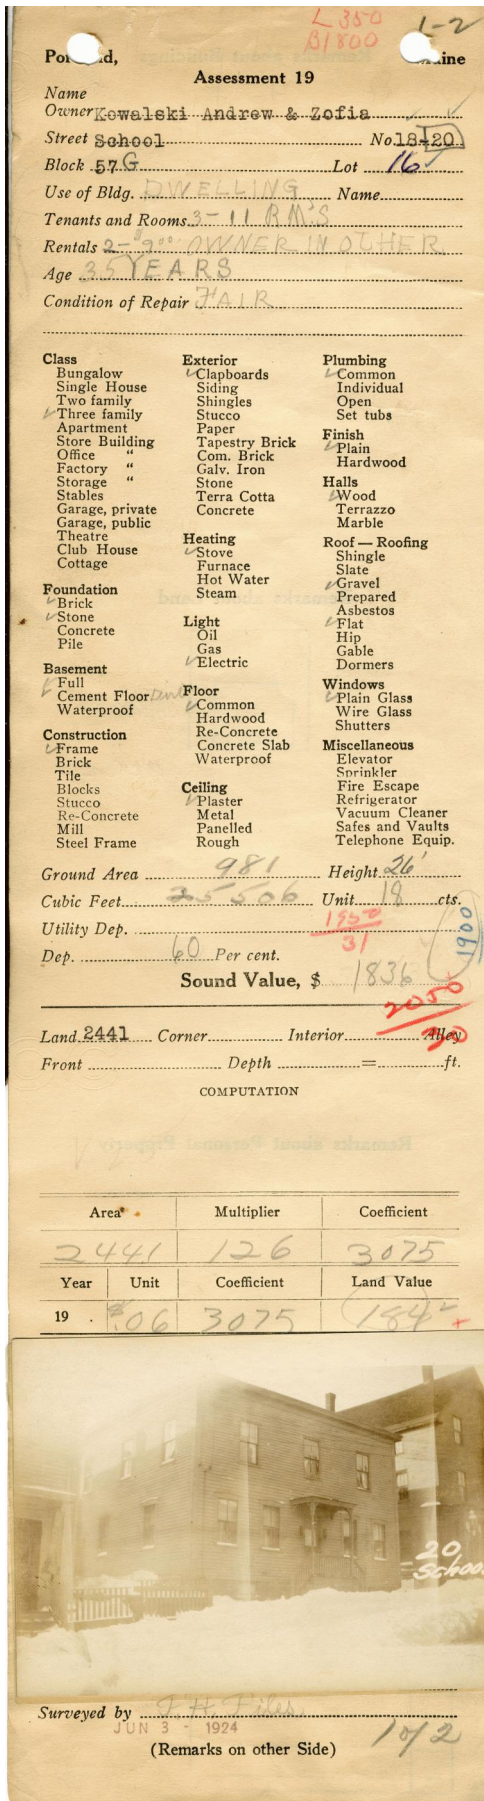 L 350
B1800
1-2
Portland, Maine
Assessment 19
Name
Owner Kowalski Andrew & Zofia
Street School No 18-20
Block 57G Lot 16
Use of Bldg. DWELLING Name
Tenants and Rooms 3-11 RM'S
Rentals 2-9.00 OWNER IN OTHER
Age 35 YEARS
Condition of Repair FAIR
Class
Bungalow
Single House
Two family
✓ Three family
Apartment
Store Building
Office "
Factory "
Storage "
Stables
Garage, private
Garage, public
Theatre
Club House
Cottage
Foundation
✓ Brick
✓ Stone
Concrete
Pile
Basement
✓ Full
✓ Cement Floor
Waterproof
Construction
✓ Frame
Brick
Tile
Blocks
Stucco
Re-Concrete
Mill
Steel Frame
Exterior
✓ Clapboards
Siding
Shingles
Stucco
Paper
Tapestry Brick
Com. Brick
Galv. Iron
Stone
Terra Cotta
Concrete
Heating
✓ Stove
Furnace
Hot Water
Steam
Light
Oil
Gas
✓ Electric
Floor
✓ Common
Hardwood
Re-Concrete
Concrete Slab
Waterproof
Ceiling
✓ Plaster
Metal
Panelled
Rough
Plumbing
✓ Common
Individual
Open
Set tubs
Finish
✓ Plain
Hardwood
Halls
✓ Wood
Terrazzo
Marble
Roof — Roofing
Shingle
Slate
✓ Gravel
Prepared
Asbestos
✓ Flat
Hip
Gable
Dormers
Windows
✓ Plain Glass
Wire Glass
Shutters
Miscellaneous
Elevator
Sprinkler
Fire Escape
Refrigerator
Vacuum Cleaner
Safes and Vaults
Telephone Equip.
Ground Area 981 Height 26'
Cubic Feet 25506 Unit 18 cts.
Utility Dep. 1950
31
1900
Dep. 60 Per cent.
Sound Value, $ 1836
2050
30
Land 2441 Corner Interior Alley
Front Depth = ft.
COMPUTATION
Area Multiplier Coefficient
2441 126 3075
Year Unit Coefficient Land Value
19 $.06 3075 184
20
School
Surveyed by F. H. Files
JUN 3 - 1924
1 of 2
(Remarks on other Side)